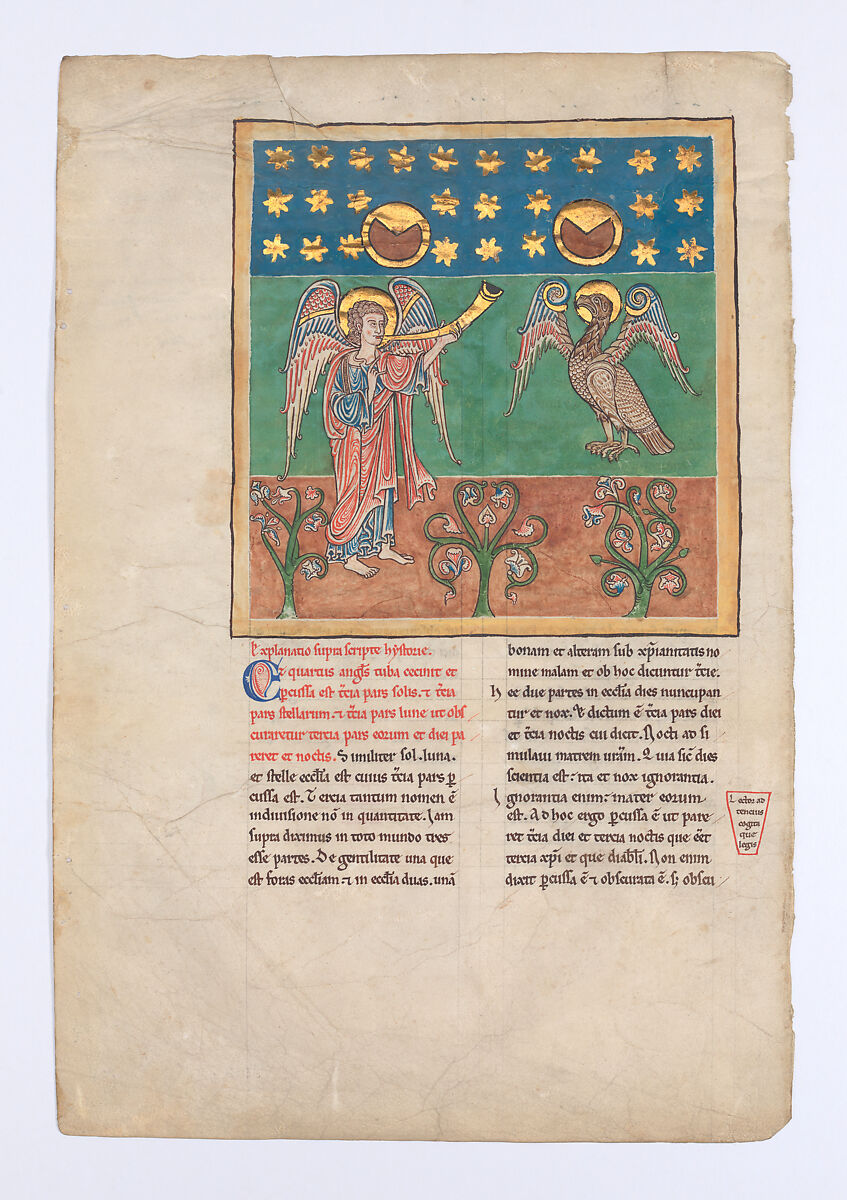 Explanatio supra scripte hystorie.
Et quartus angl̃s tuba cecinit et
p̃cussa est t̃cia pars solis. ⁊ t̃cia
pars stellarum. ⁊ t̃cia pars lune ut obs
curaretur tercia pars eorum et diei pa
reret et noctis. Similiter sol. luna.
et stelle eccl̃ia est cuius t̃cia pars p̃
cussa est. Tercia tantum nomen ẽ
indiuisione nõ in quantitate. Jam
supra diximus in toto mundo tres
esse partes. De gentilitate una que
est foras eccl̃iam. ⁊ in eccl̃ia duas. unã
bonam et alteram sub xp̃ianitatis no
mine malam et ob hoc dicuntur t̃cie.
hee due partes in eccl̃ia dies nuncupan
tur et nox. Vt dictum ẽ t̃cia pars diei
et t̃cia noctis cui dicit. Nocti ad si
mulaui matrem ur̃am. Quia sic̃ dies
scientia est. ita et nox ignorantia.
Ignorantia enim mater eorum
est. Ad hoc ergo p̃cussa ẽ ut pare
ret t̃cia diei et tercia noctis que ẽet
tercia xp̃i et que diabl̃i. Non enim
dixit p̃cussa ẽ ⁊ obscurata ẽ. s; obscu
Lector ad
tencius
cogita
que
legis